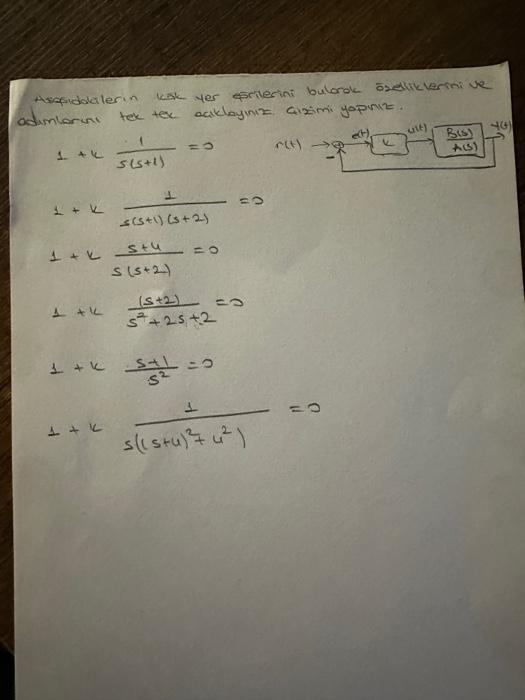 Aşağıdakilerin kök yer eğrilerini bularak özelliklerini ve
adımlarını tek tek açıklayınız. Çizimi yapınız.
r(t) → - e(t) K u(t) B(s)/A(s) y(t)
1 + K 1/(s(s+1)) = 0
1 + K 1/(s(s+1)(s+2)) = 0
1 + K (s+4)/(s(s+2)) = 0
1 + K (s+2)/(s²+2s+2) = 0
1 + K (s+1)/s² = 0
1 + K 1/(s((s+4)²+4²)) = 0